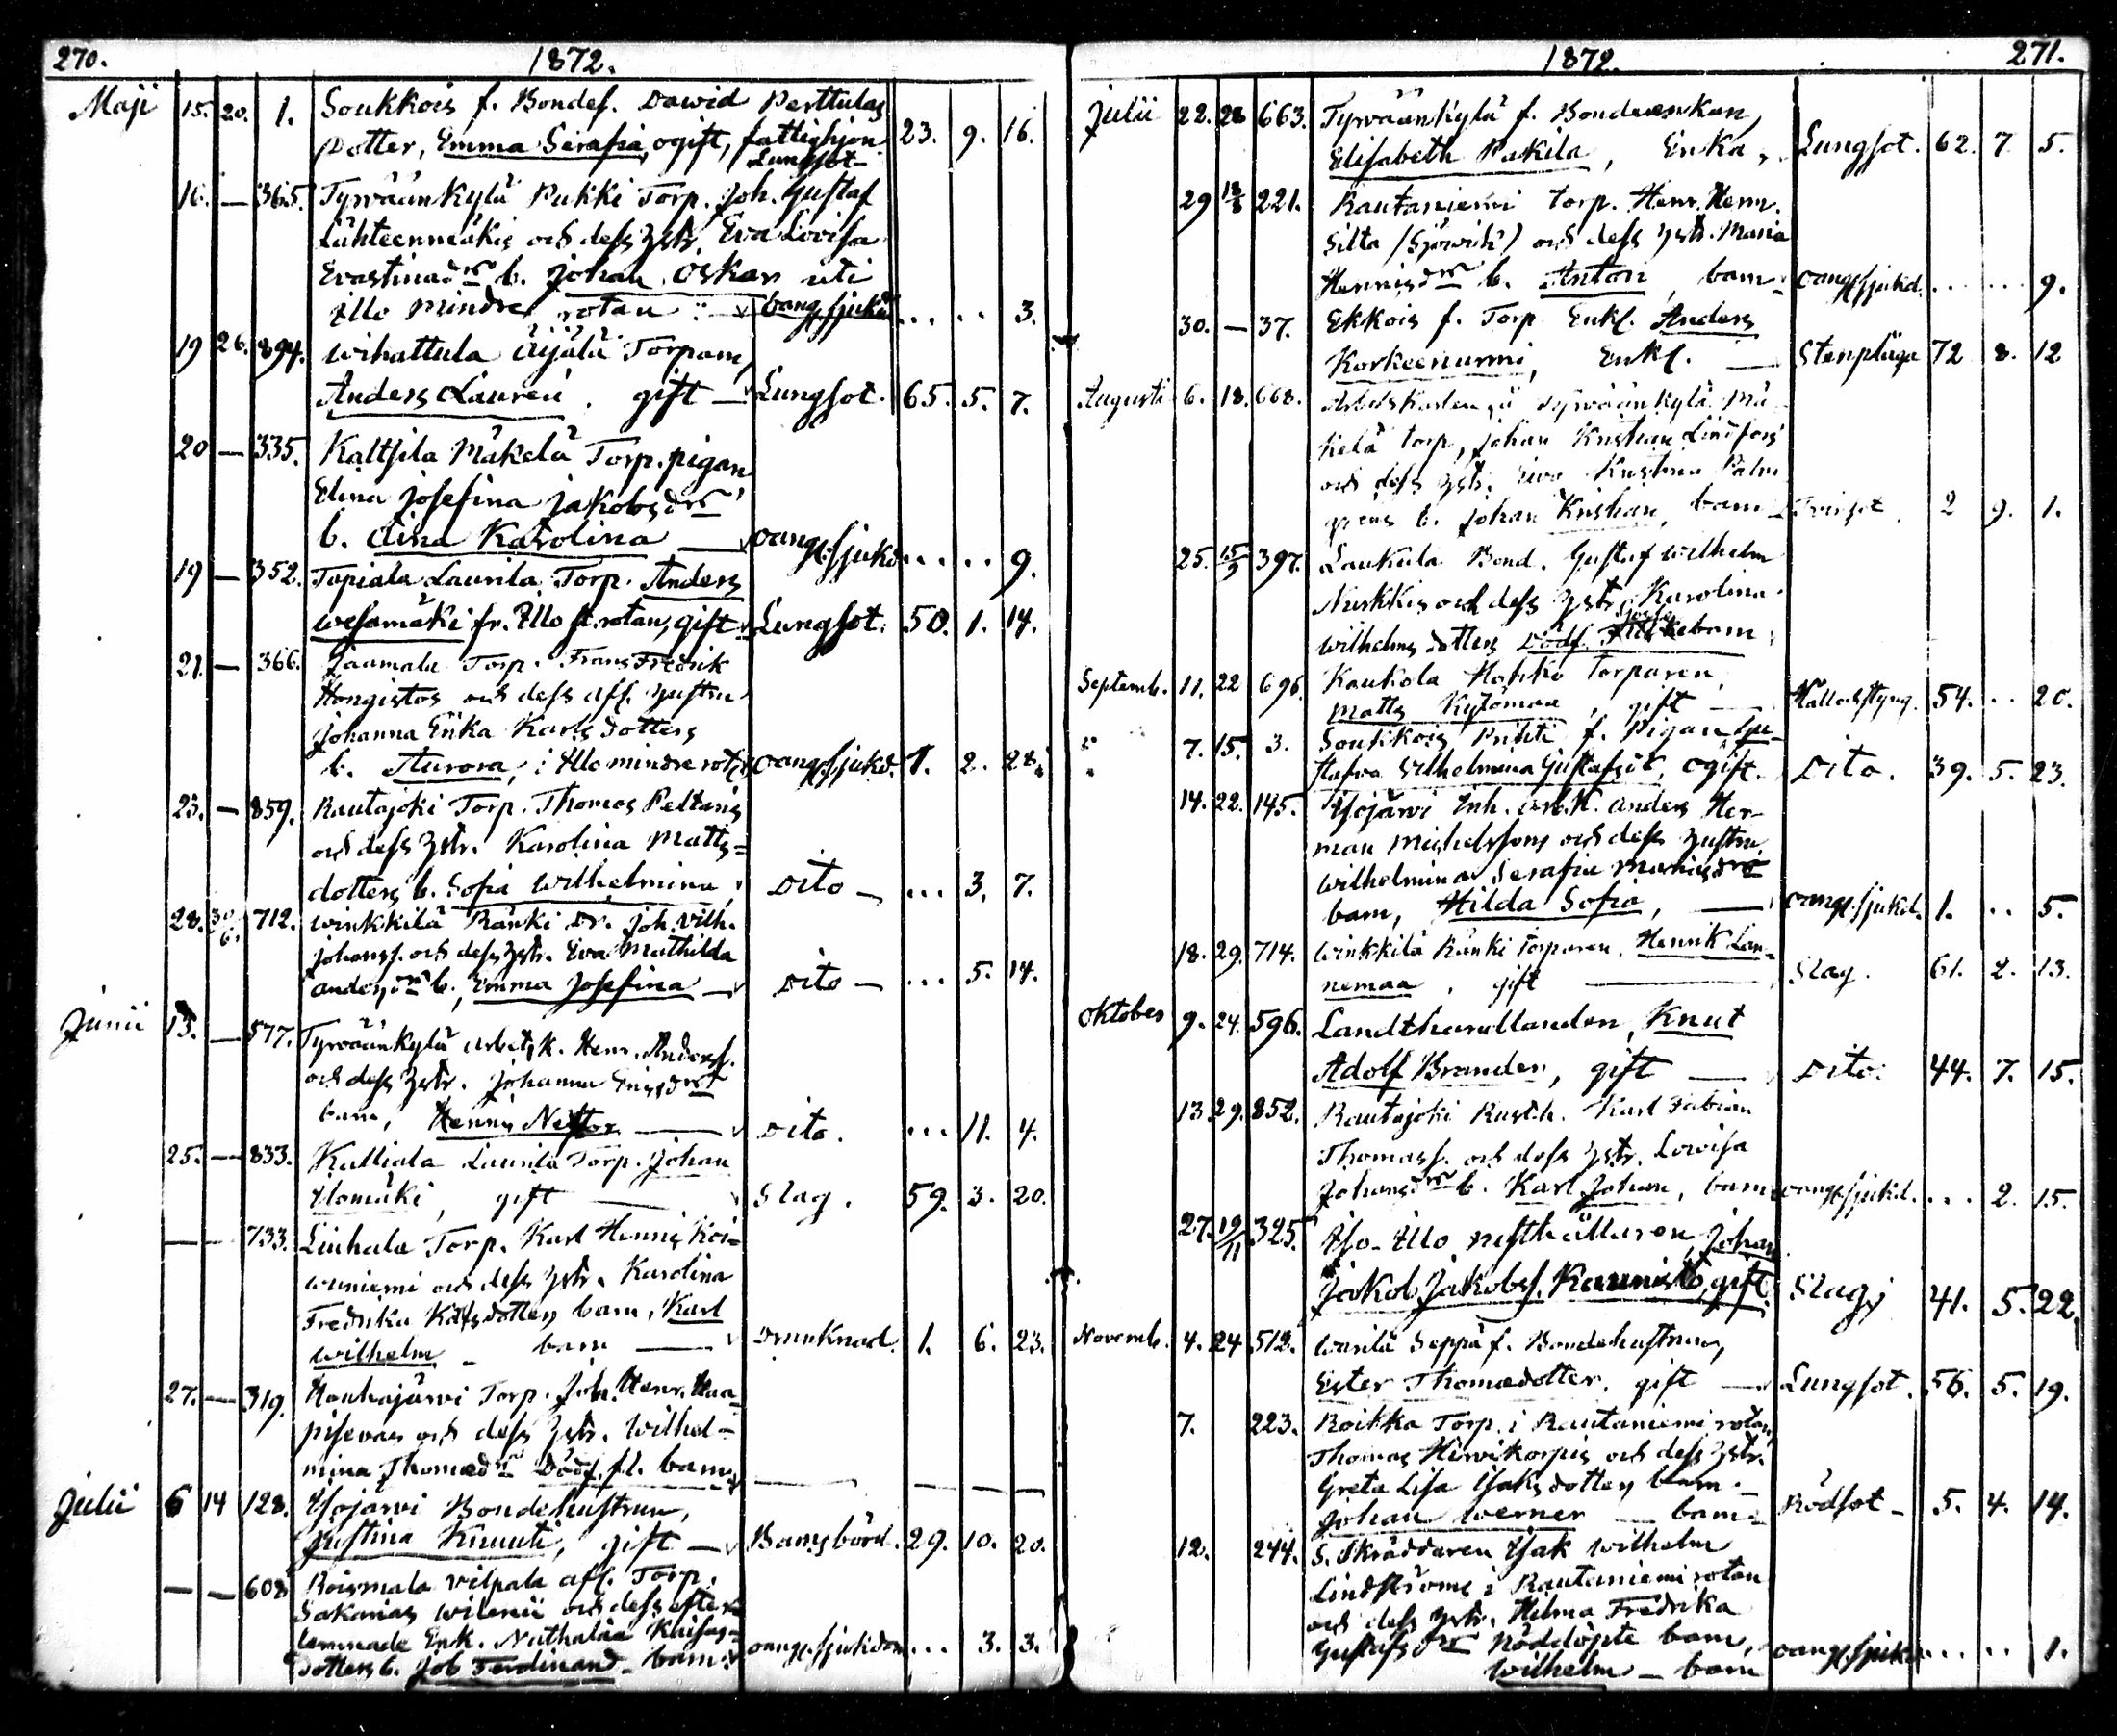 270. 1872.
Maji 15. 20. 1. Soukkois f. Bondes. Dawid Perttulas
Dotter, Emma Serafia, ogift, fattighjon 23. 9. 16.
Lungsot
16. — 365. Tyrväänkylä Pukki Torp. Joh. Gustaf
Lähteenmäkis och dess hstr. Eva Lovisa
Evastinadr b. Johan Oskar uti
Illo mindre rotan oang. sjukd. ... .. 3.
19 26. 894. Wihattula Äijälä Torparn,
Anders Lauren, gift — Lungsot. 65. 5. 7.
20 — 335. Kaltsila Mäkelä Torp. pigan
Elina Josefina Jakobsdr
b. Aina Karolina — oang. sjukd. ... .. 9.
19 — 352. Topiala Laurila Torp. Anders
Wesamäki fr. Illo st. rotan, gift Lungsot. 50. 1. 14.
21. — 366. Jaamala Torp. Frans Fredrik
Hongistos och dess afl. hustru
Johanna Erika Karlsdotters
b. Aurora, i Illo mindre rot. oang. sjukd. 1. 2. 28.
23. — 859. Rautajoki Torp. Thomas Peltaris
och dess hstr. Karolina Matts=
dotters b. Sofia Wilhelmina, Dito — ... 3. 7.
28. 30/6. 712. Winkkilä Ränki Dr. Joh. Wilh.
Johanss. och dess hstr. Eva Mathilda
Andersdr b., Emma Josefina — Dito — ... 5. 14.
Junii 13. — 577. Tyrväänkylä arbets k. Henr. Anderss.
och dess hstr. Johanna Ericsdr
barn, Henny Nestor — Dito. ... 11. 4.
25. — 833. Kalliala Laurila Torp. Johan
Ylomäki, gift — Slag. 59. 3. 20.
— — 733. Liuhala Torp. Karl Henris Koi=
wuniemi och dess hstr. Karolina
Fredrika Karlsdotters barn, Karl
Wilhelm — barn — Drunknad. 1. 6. 23.
27. — 319. Houhajärwi Torp. Joh. Henr. Haa=
pisevas och dess hstr. Wilhel=
mina Thomædr Dödf. fl. barn — — — —
Julii 6 14 128. Ylojärwi Bondehustrun,
Justina Knuuti, gift — Barnsbörd. 29. 10. 20.
— — 608. Roismala Vilpala afl. Torp.
Sakarias Wilenii och dess efter=
lemnade Enk. Nathalia
dotters b. Job Ferdinand — barn oang. sjukdom ... 3. 3.
1872. 271.
Julii 22. 28 663. Tyrväänkylä f. Bondeenkan,
Elisabeth Pakila, Enka, Lungsot. 62. 7. 5.
29 221. Rautaniemi torp. Henr. Henr.
Silta (Sjöwik) och dess hstr. Maria
Henrisdr b. Anton, barn oang. sjukd. ... ... 9.
30. — 37. Ekkois f. Torp Enkl. Anders
Korkeenurmi, Enkl. — Stenplåga 72 8. 12
Augusti 6. 18. 668. Arbetskarlen å Tyrväänkylä Mä=
kelä torp, Johan Kristian Lindfors
och dess hstr. Eva Kristina Palm
grens b. Johan Kristian, barn 2 9. 1.
25. 15/9 397. Laukula Bond. Gustaf Wilhelm
Nukkis och dess hstr Karolina
Wilhelms dotters Dödf. barn
Septemb. 11. 22 696. Kaukola Hohko Torparen,
Matts Kylömaa, gift — Håll och styng. 54. .. 20.
" 7. 15. 3. Soukkois Prihti f. Pigan Gu=
stafva Wilhelmina Gustafsdr, ogift. Dito. 39. 5. 23.
14. 22. 145. Ylojärwi Inh. arb. k. Anders Her=
man Michelssons och dess hustru
Wilhelmina Serafia
barn, Hilda Sofia, — oang. sjukd. 1. .. 5.
18. 29. 714. Winkkilä Ränki torparen, Henrik Lan=
nemaa, gift — Slag. 61. 2. 13.
Oktober 9. 24. 596. Landthandlanden, Knut
Adolf Brander, gift — Dito. 44. 7. 15.
13 29. 852. Rautajoki Rusth. Karl Fabian
Thomass. och dess hstr. Lowisa
Johansdr b. Karl Johan, barn oang. sjukd. ... 2. 15.
27. 19/11 325. Iso-Illo rusthållaren, Johan
Jakob Jakobss. Kaunisto, gift. Slag; 41. 5. 22.
Novemb. 4. 24 512. Warila Seppä f. Bondehustrun,
Ester Thomædotter, gift — Lungsot. 56. 5. 19.
7. 223. Roikka Torp. i Rautaniemi rotan,
Thomas Hirwikorpis och dess hstr.
Greta Lisa Isaks dotters barn —
Johan Werner — barn Rödsot — 5. 4. 14.
12. 244. S. Skräddaren Isak Wilhelm
Lindströms i Rautaniemi rotan
och dess hstr. Hilma Fredrika
Gustafsdr nöddöpte barn,
Wilhelm — barn oang. sjukd. ... .. 1.